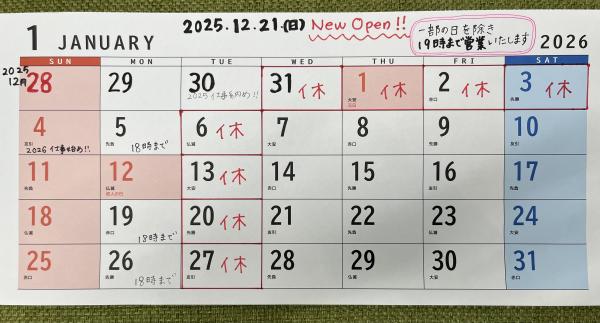 2025.12.21.(日) New Open!!
一部の日を除き
19時まで営業いたします
1 JANUARY 2026
SUN MON TUE WED THU FRI SAT
2025
12月
28 29 30 31 休 1 休 2 休 3 休
2025 仕事納め!! 大安 赤口 先勝
元日
4 5 6 休 7 8 9 10
友引 先負 18時まで 仏滅 大安 赤口 先勝 友引
2026 仕事始め!!
11 12 13 休 14 15 16 17
先負 仏滅 大安 赤口 先勝 友引 先負
成人の日
18 19 20 休 21 22 23 24
仏滅 大安 赤口
18時まで
25 26 27 休 28 29 30 31
赤口 先勝 友引 先負 仏滅 大安 赤口
18時まで